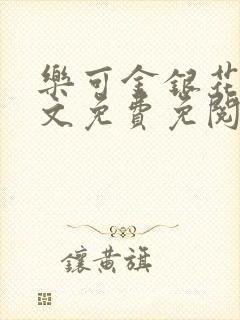 樂可金銀花
文免費免閱
鑲黃旗